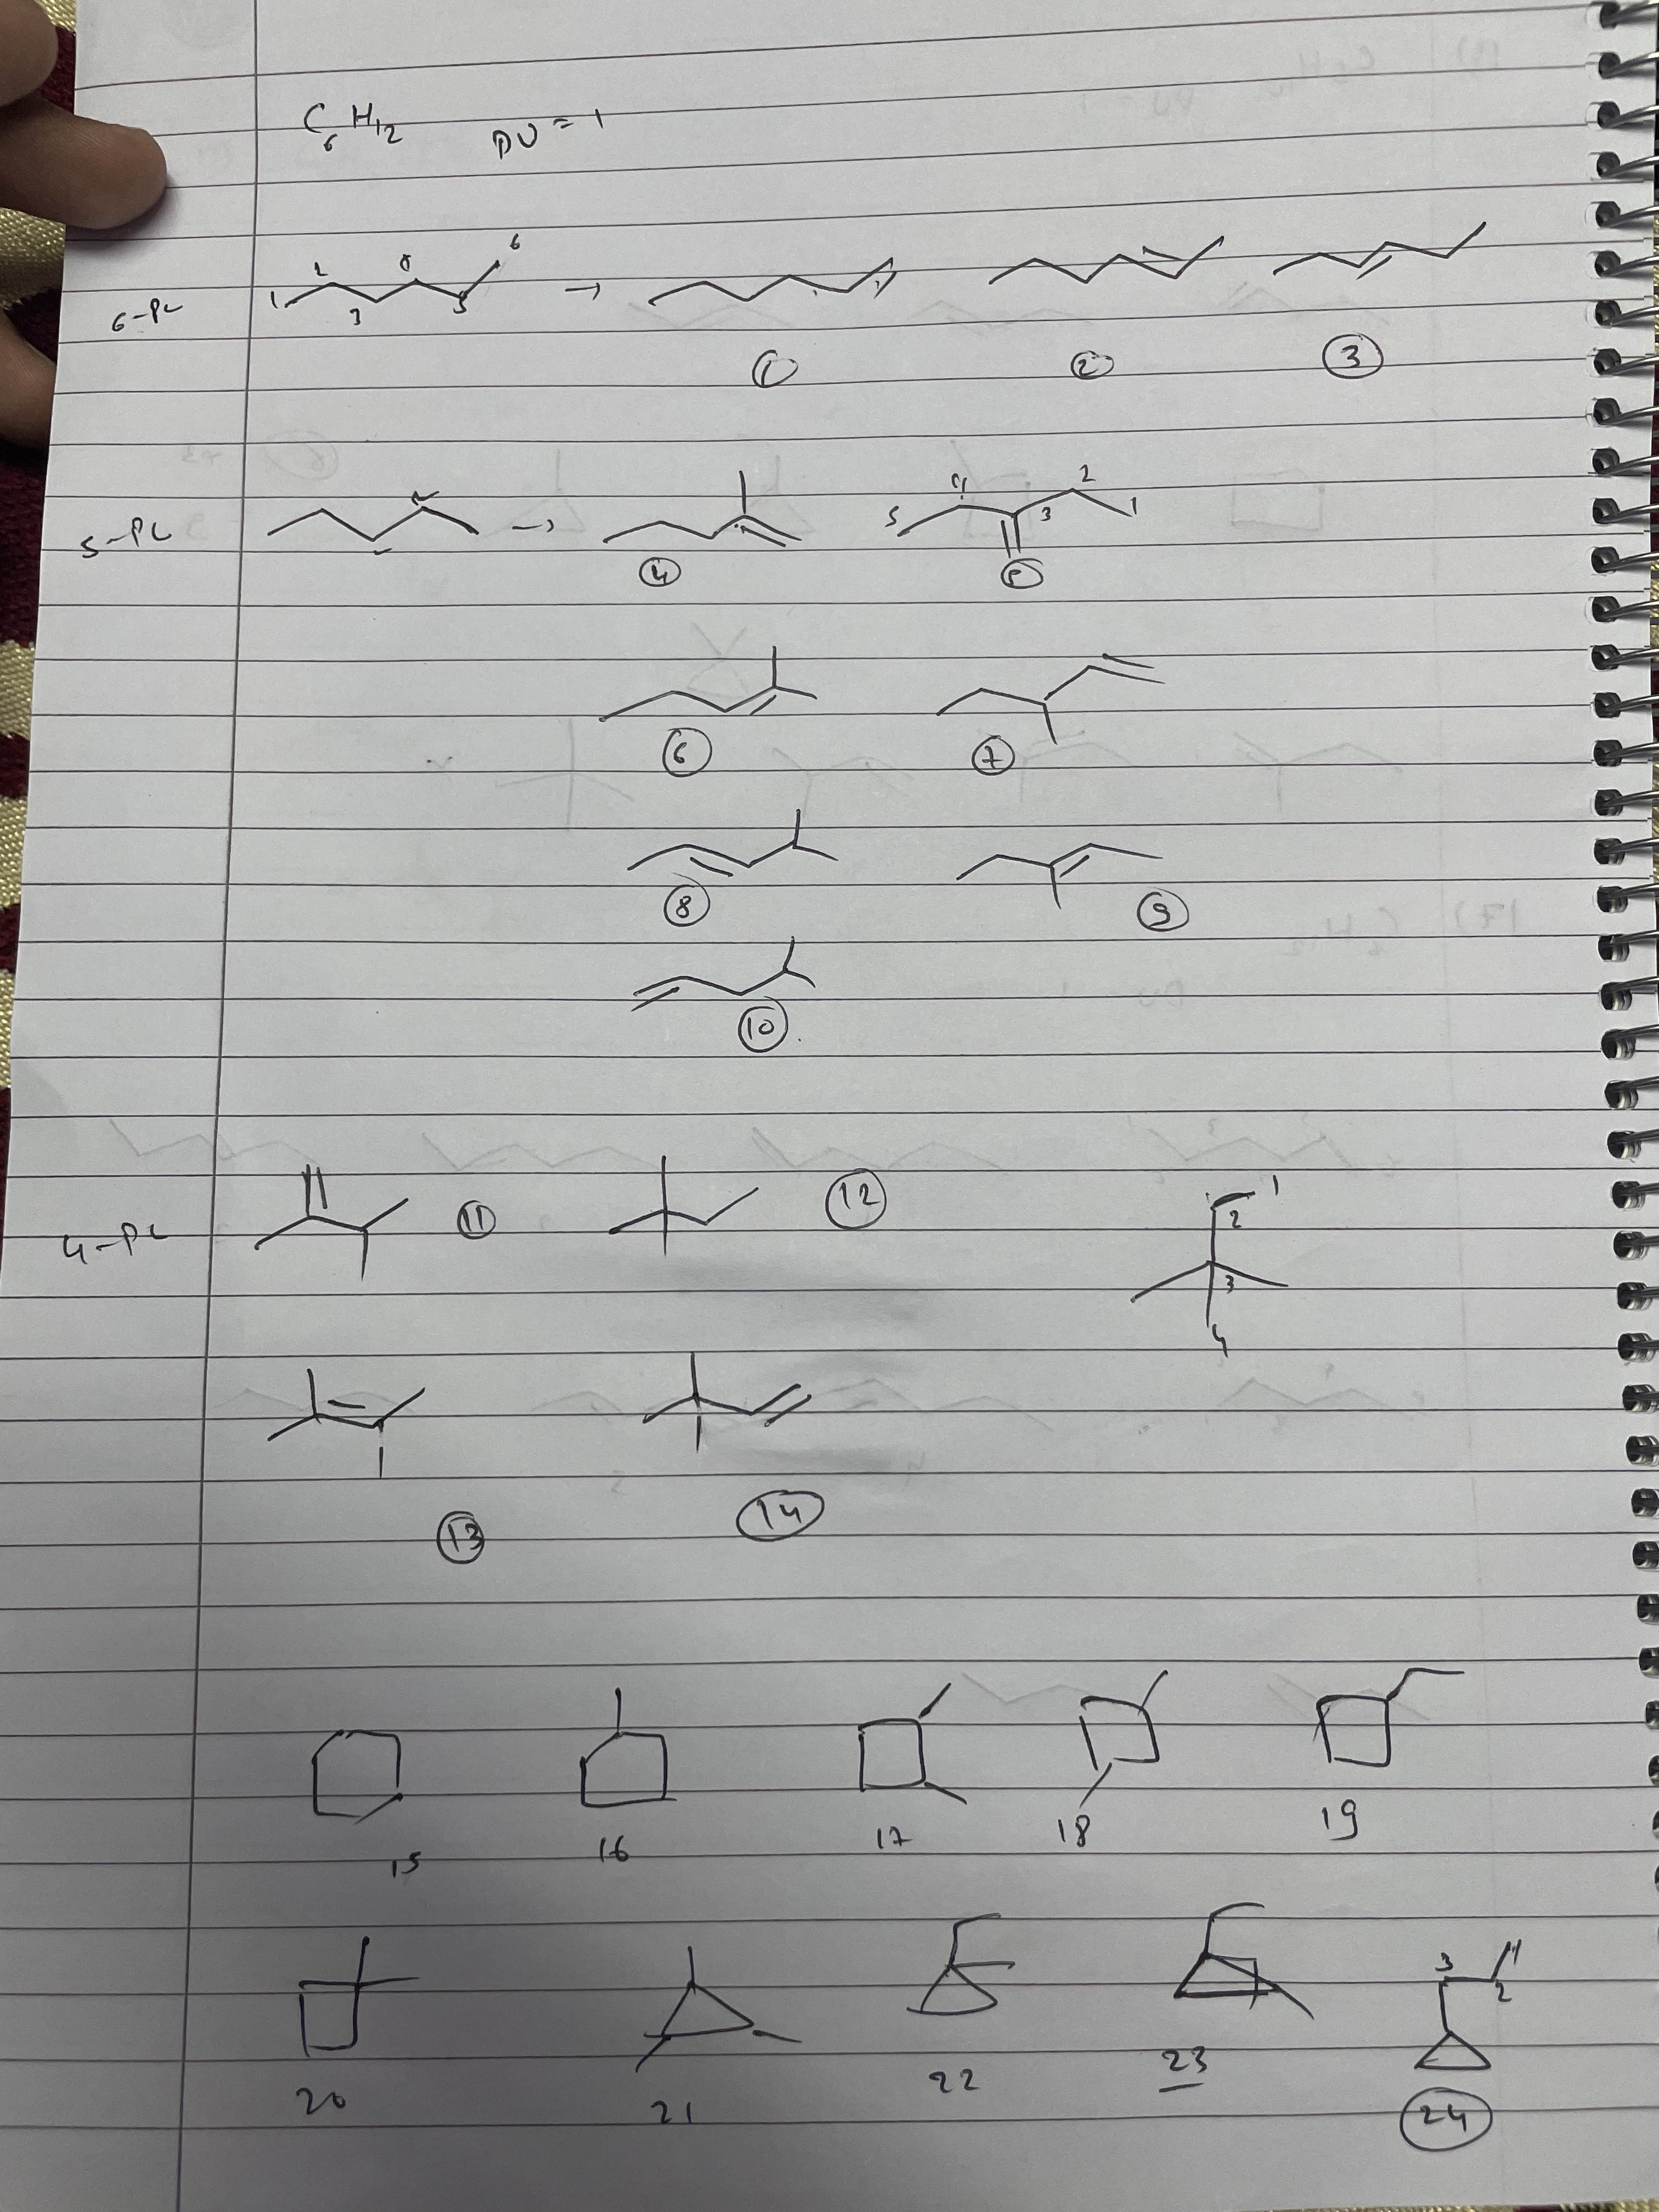 C6H12 DU = 1
6-PC 1 2 3 4 5 6 →
1 2 3
5-PC → 5 4 3 2 1
4 5
6 7
8 9
10
4-PC 11 12 1 2 3 4
13 14
15 16 17 18 19
3 2 1
20 21 22 23 24